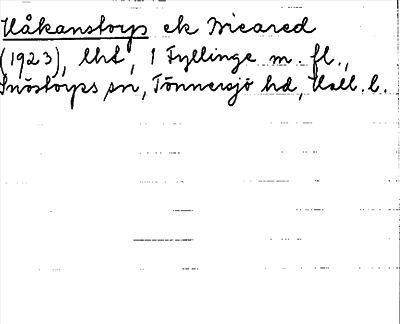 Håkanstorps ek Bicared
(1923), lht, 1 Fyllinge m. fl.,
Snöstorps sn, Tönnersjö hd, Hall. l.